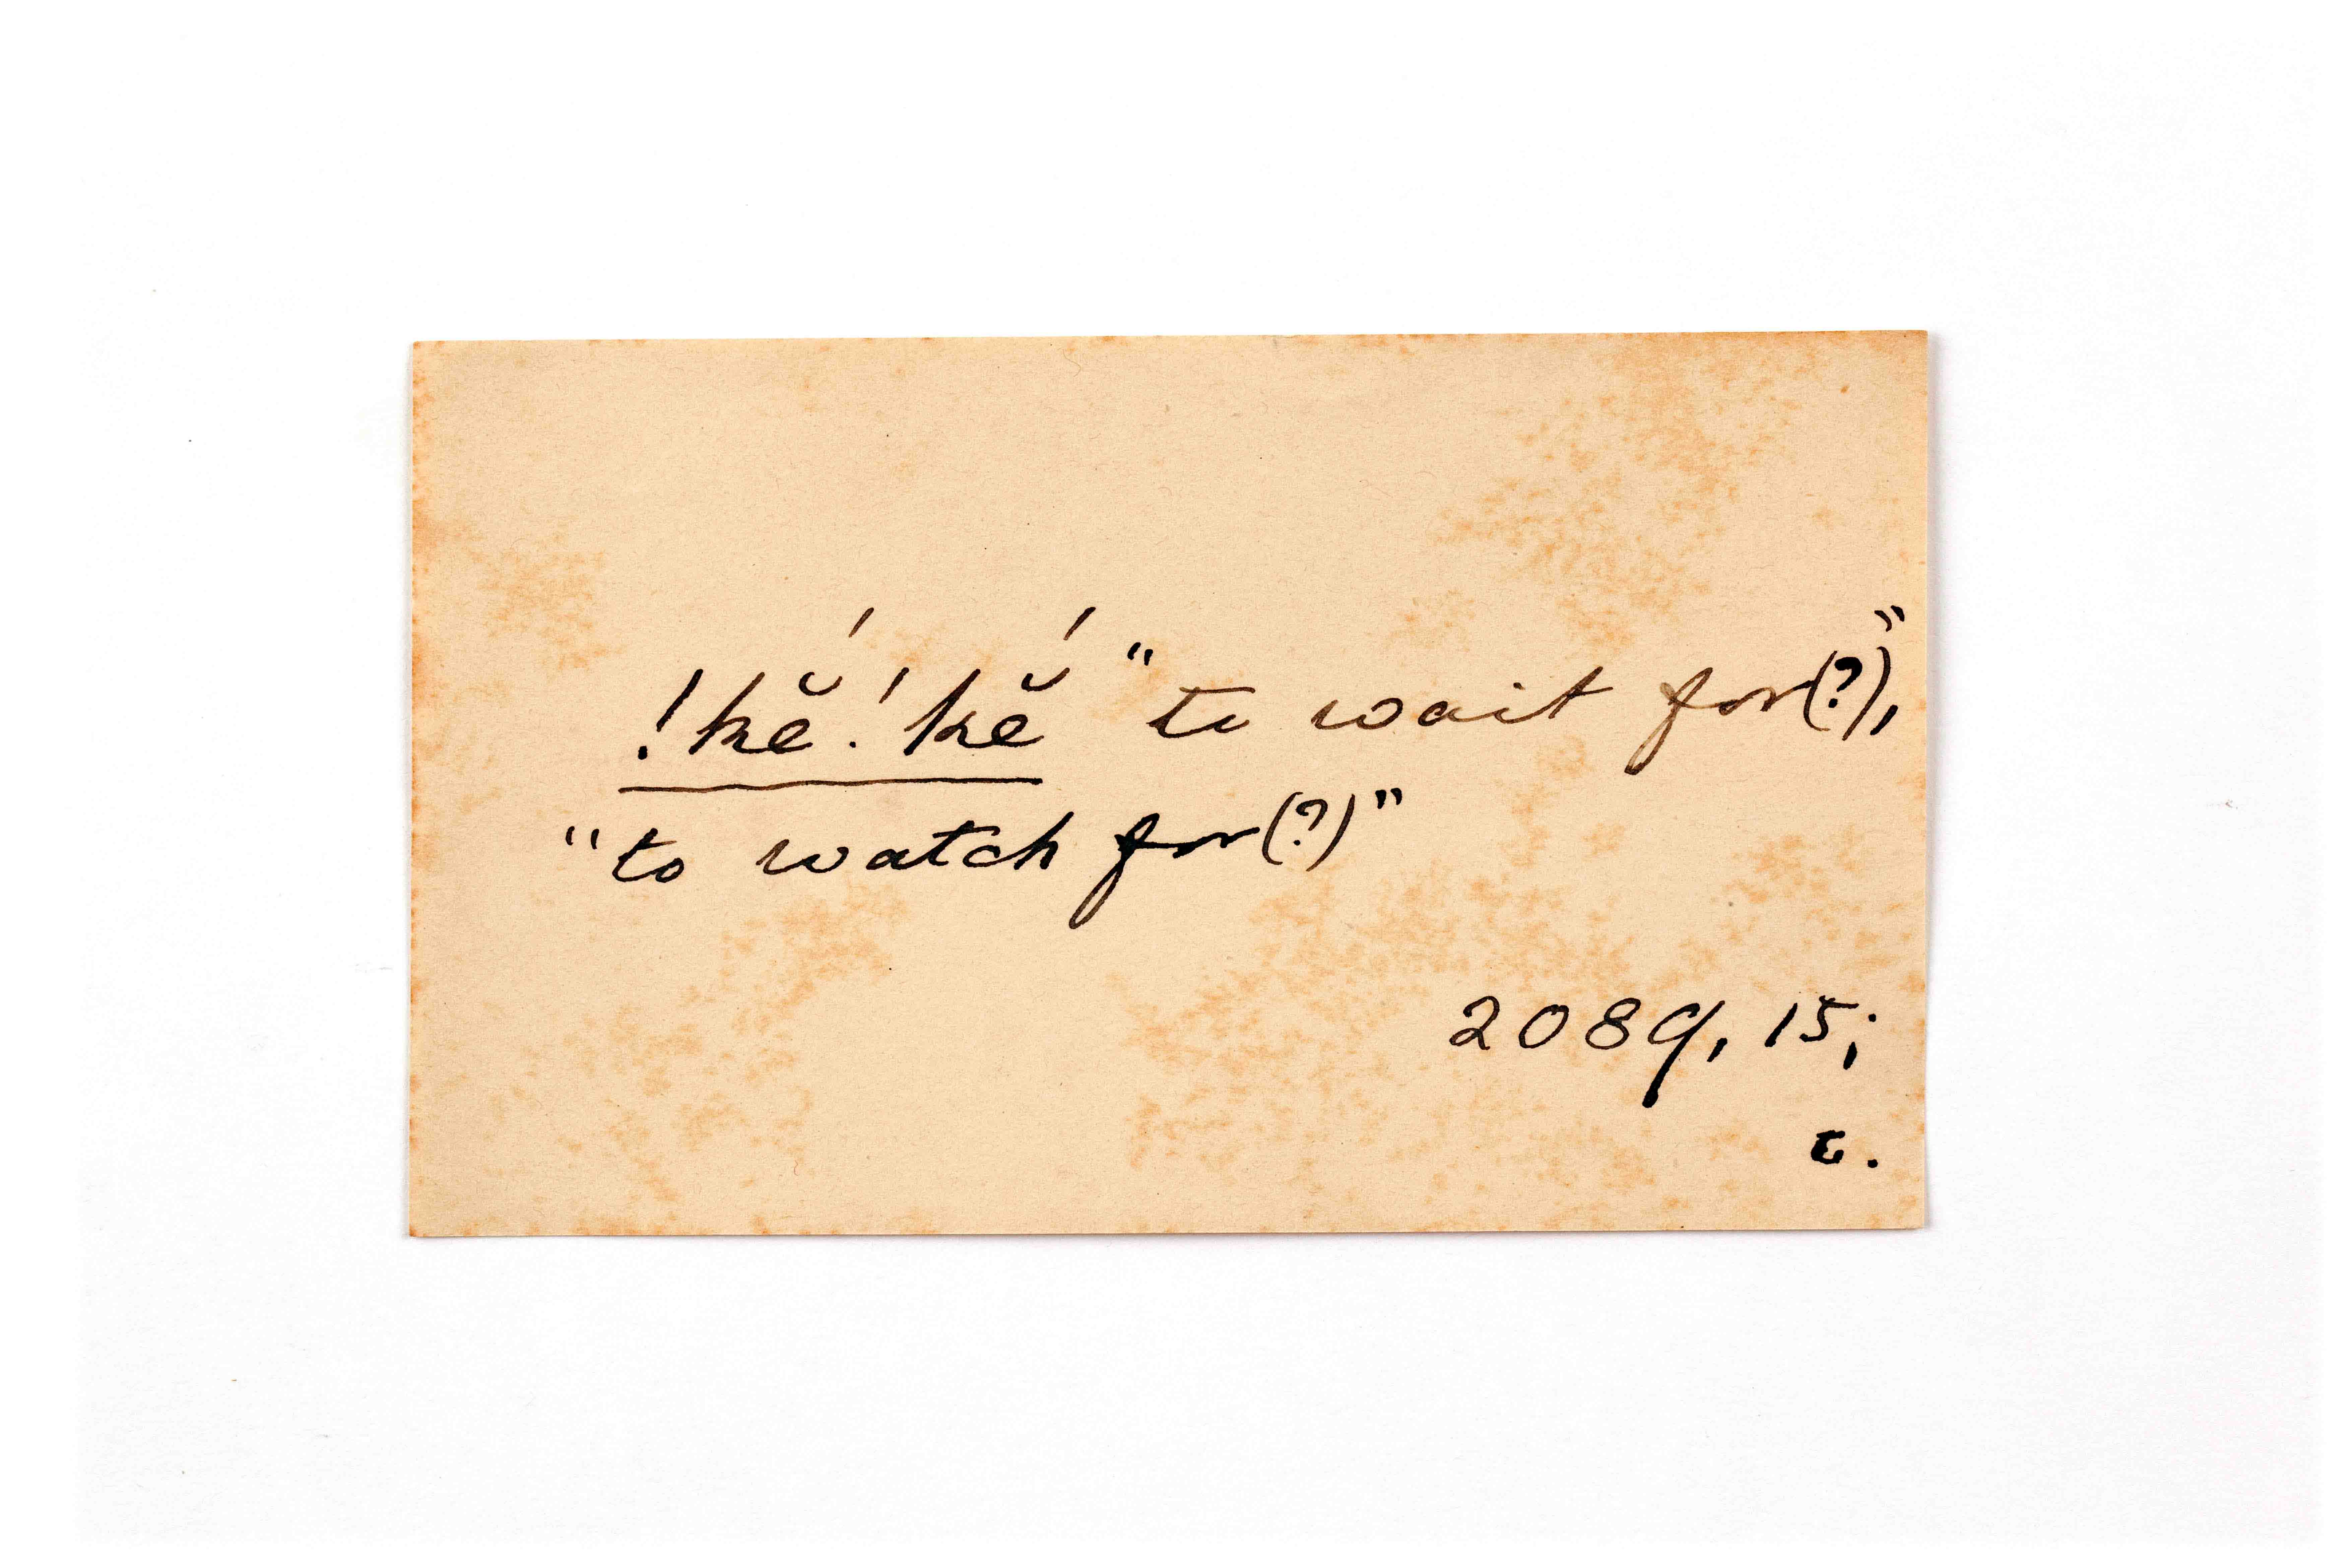 !kĕ́!kĕ́ "to wait for(?)",
"to watch for(?)"
2089, 15;